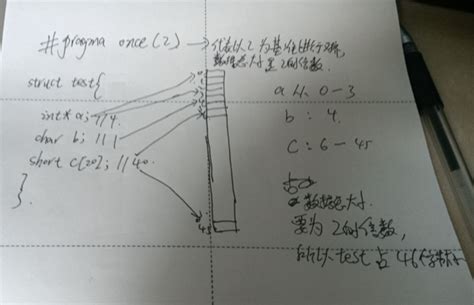 #pragma once(2) → 代表以2为基准进行对齐,
数据总大小是2的倍数.
struct test{
int* a; //4.
char b; //1
short c[20]; //40.
}.
a 从 0-3
b : 4.
c : 6-45
数据总大小
要为2的倍数,
所以test占46个字节大小
45